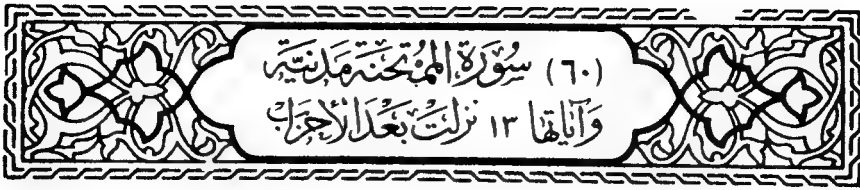 (٦٠) سُورَةُ المُمْتَحَنَةِ مَدَنِيَّة
وَآيَاتُهَا ١٣ نَزَلَتْ بَعْدَ الأَحْزَابِ